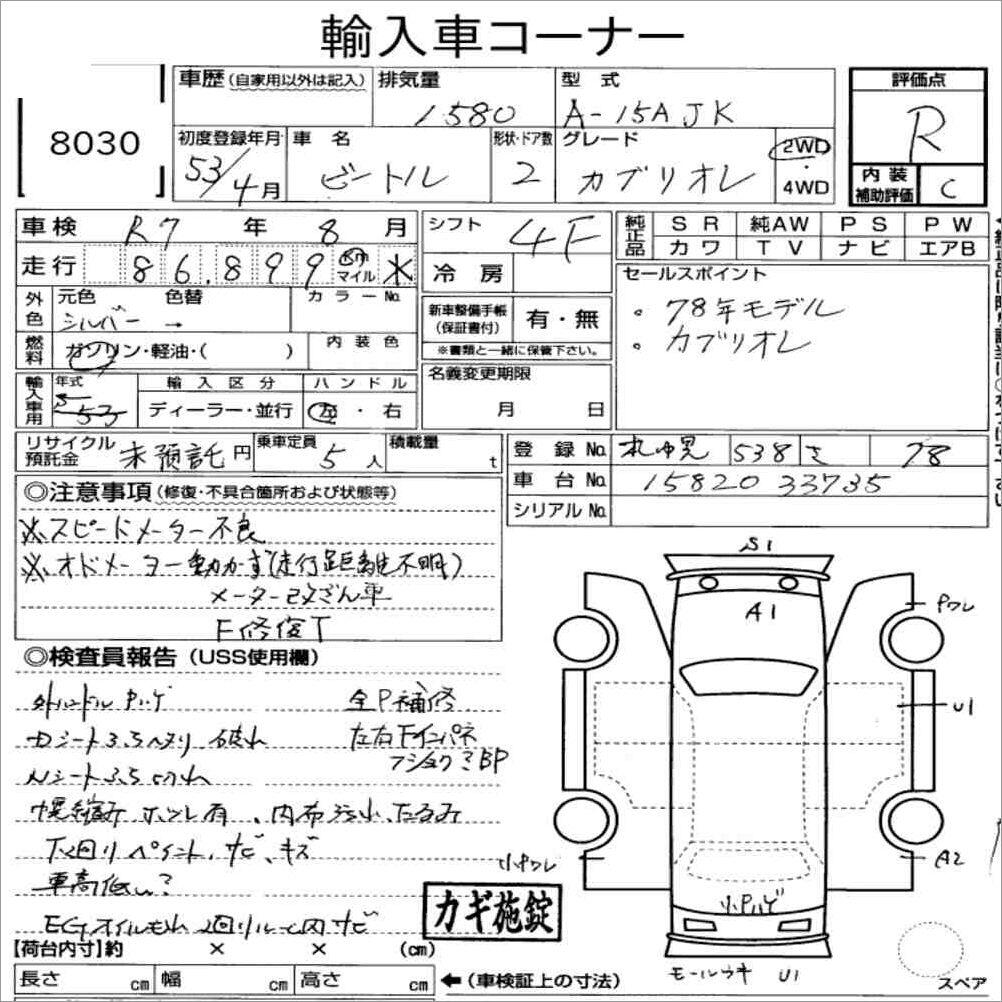 輸入車コーナー
8030
車歴(自家用以外は記入) 排気量 型式 評価点
1580 A-15AJK R
初度登録年月 車名 形状・ドア数 グレード 2WD
53/4月 ビートル 2 カブリオレ 4WD
内装補助評価 C
車検 R7年 8月 シフト 4F
走行 86,899 km マイル ※
純正品 SR 純AW PS PW
カワ TV ナビ エアB
冷房
セールスポイント
・78年モデル
・カブリオレ
外色 元色 色替 カラーNo.
シルバー →
新車整備手帳(保証書付) 有・無
※書類と一緒に保管下さい。
燃料 ガソリン・軽油・( ) 内装色
輸入車用 年式 輸入区分 ハンドル
S53 ディーラー・並行 左・右
名義変更期限
月 日
リサイクル預託金 未預託 円 乗車定員 5人 積載量 t
登録No. 538 さ 78
車台No. 1582033735
シリアルNo.
◎注意事項(修復・不具合箇所および状態等)
※スピードメーター不良
※オドメーター動かず(走行距離不明)
メーター改ざん車
F修復T
◎検査員報告(USS使用欄)
外ハンドルPハゲ 全P補修
Dシート3.5ヘタリ 破れ 左右Fインパネ
Nシート3.5切れ BP
幌縮み ホツレ有、内布汚れ、たるみ
下回りペイント、サビ、キズ
車高低い?
EGオイルモレ
カギ施錠
【荷台内寸】約 × × (cm)
長さ cm 幅 cm 高さ cm
←(車検証上の寸法)
S1
A1
Pワレ
U1
小Pワレ
A2
小Pハゲ
モールウキ U1
スペア